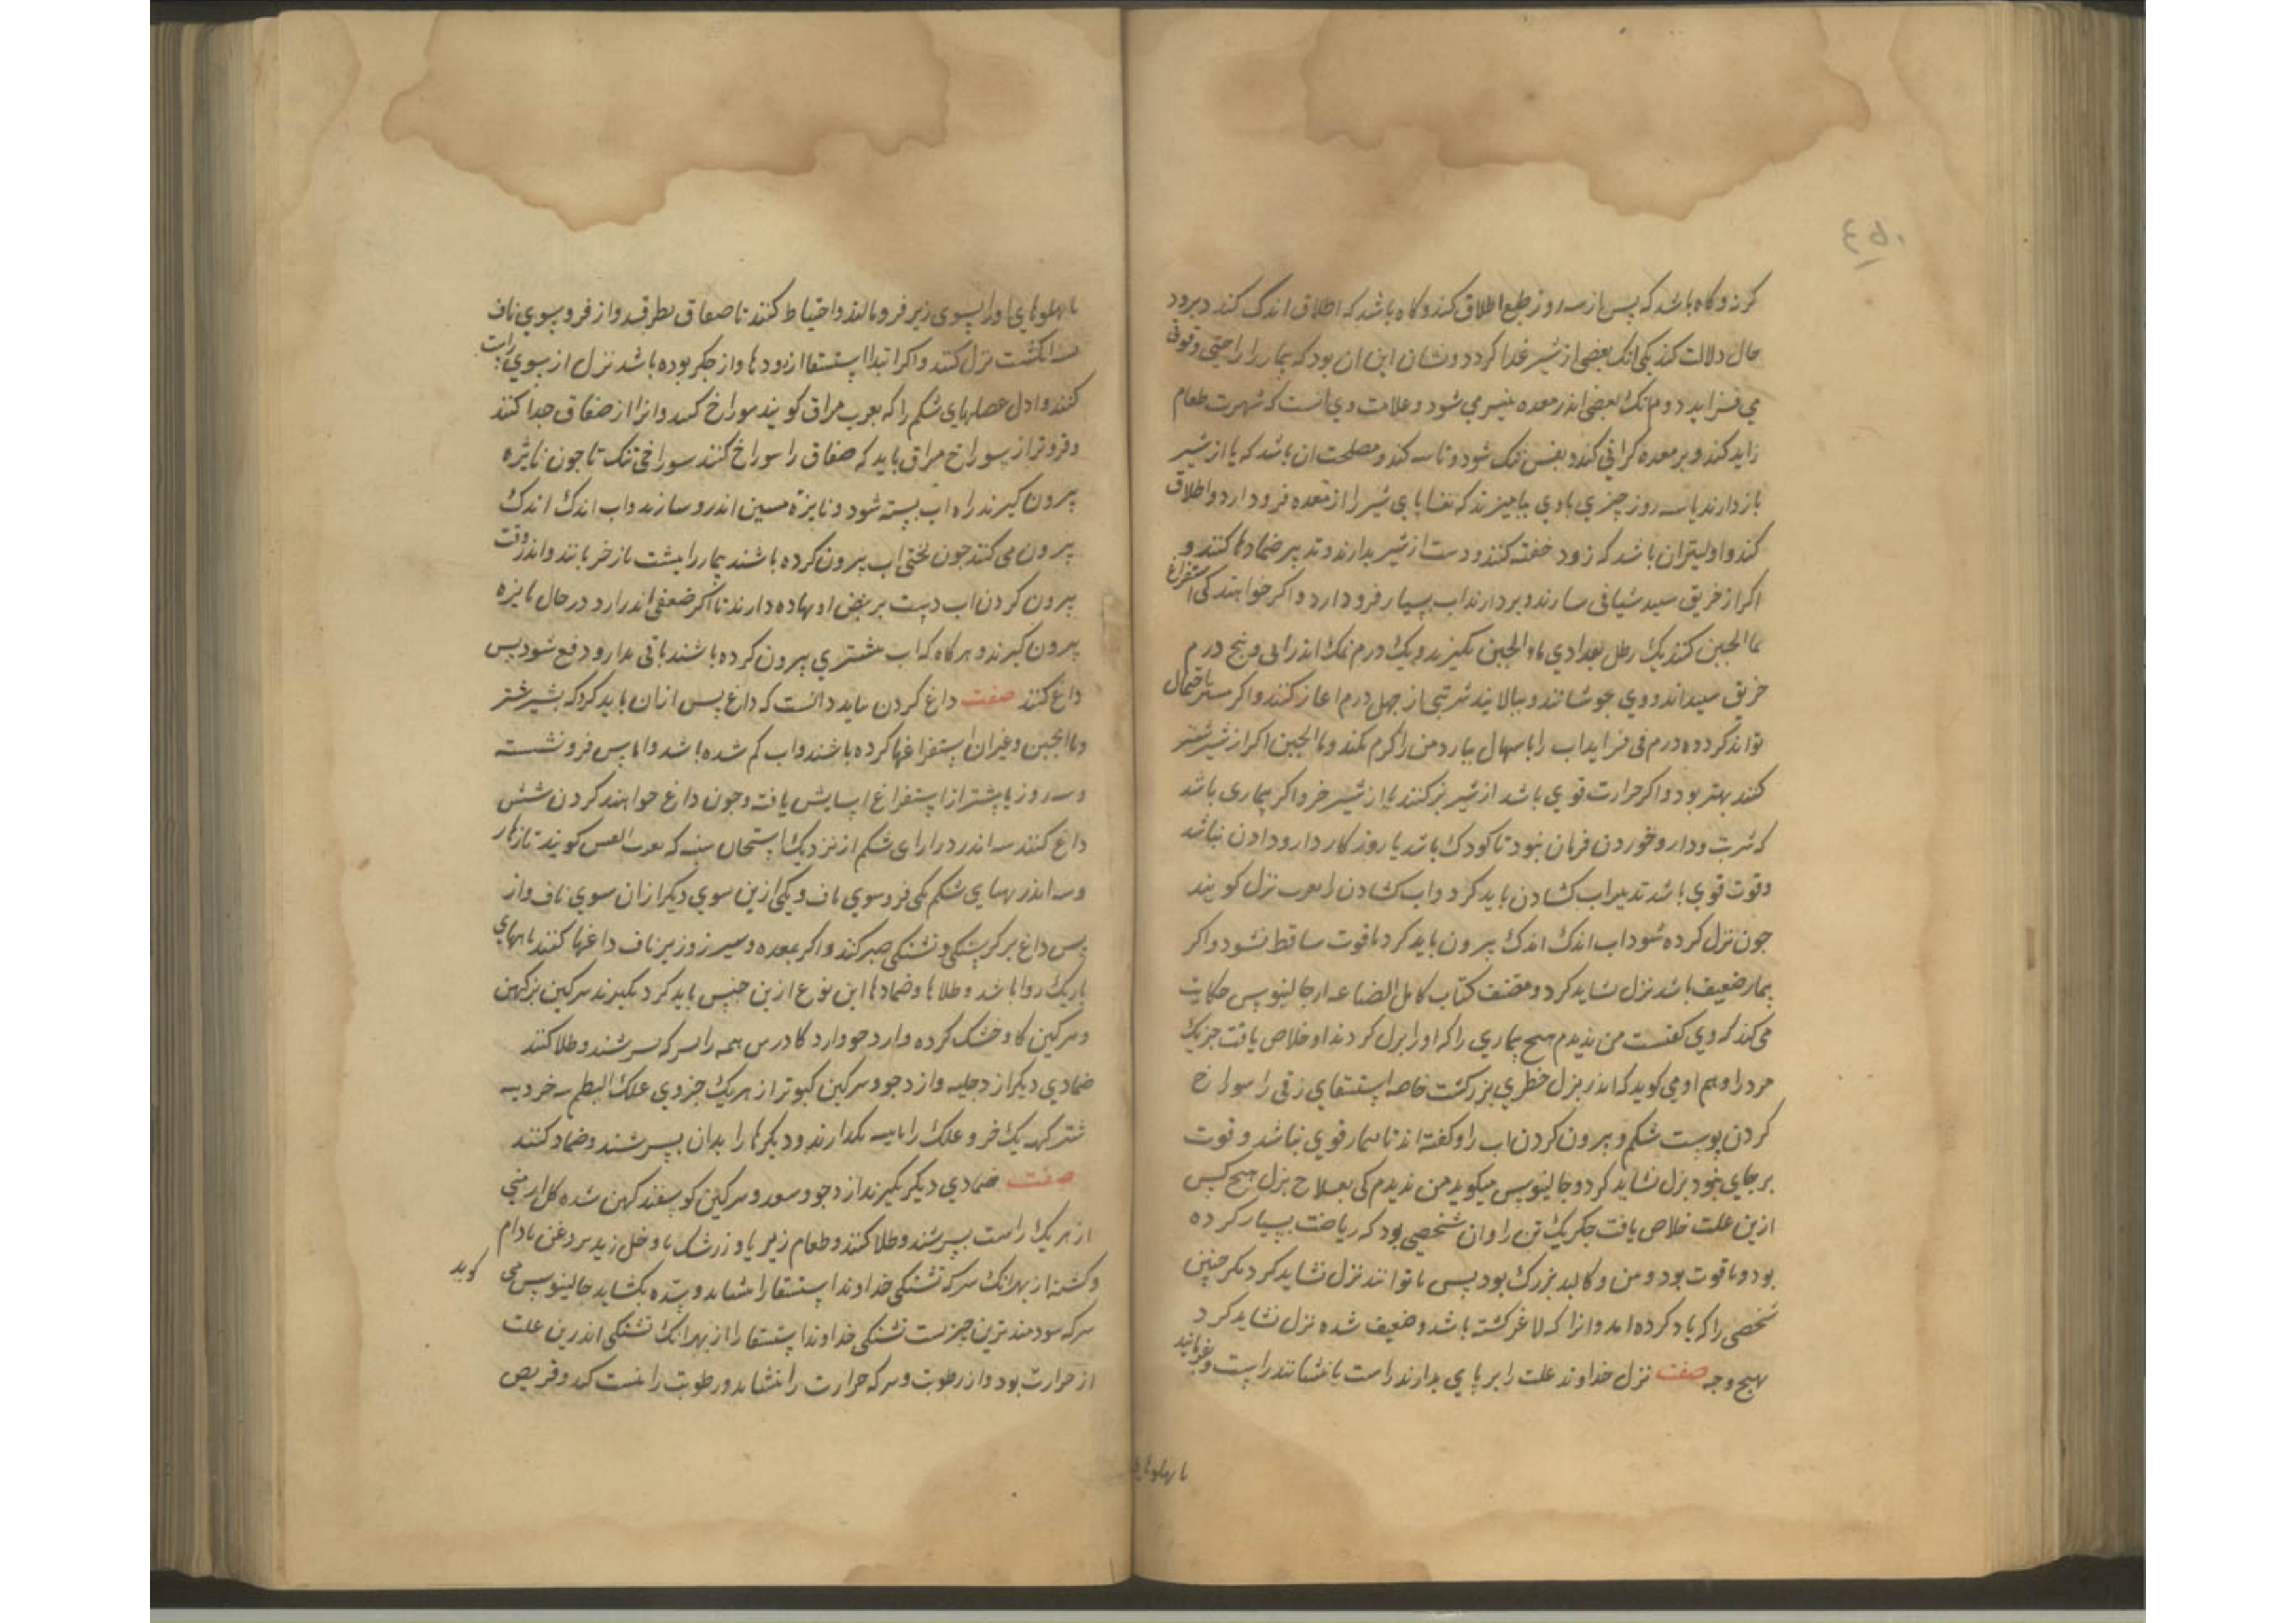 ٤٥٠
کرد و کاه باشد که پس از سه روز طبع اطلاق کند و کاه باشد که اطلاق اندک کند و برود
حال دلالت کند یکی انک بعضی از شیر غذا کردد و نشان این ان بود که بیمار را راحتی و قوتی
می فزاید دوم انک بعضی اندر معده پنیر می شود و علامت وی انست که شهوت طعام
زاید کند و بر معده کرانی کند و نفس تنک شود و تاسه کند و مصلحت ان باشد که یا از شیر
باز دارند یا سه روز چیزی با وی بیامیزند که بقایای شیر را از معده فرود ارد و اطلاق
کند و اولیتر ان باشد که زود حقنه کنند و دست از شیر بدارند و تدبیر ضمادها کنند و
اکر از خربق سپید شیافی سازند و بردارند اب بسیار فرود ارد و اکر خواهند کی استفراغ
بماالجبن کنند یک رطل بغدادی ماء الجبن بکیرند و یک درم نمک اندرانی و پنج درم
خربق سپید اندر وی بجوشانند و بپالایند شربتی از چهل درم اغاز کنند و اکر بیشتر احتمال
تواند کرد ده درم می فزاید اب را باسهال بیارد من را کرم نکند و ماالجبن اکر از شیر شتر
کنند بهتر بود و اکر حرارت قوی باشد از شیر بز کنند یا از شیر خر و اکر بیماری باشد
که شربت و دارو خوردن فرمان نبود تا کودک باشد یا روزکار دارو دادن نباشد
و قوت قوی باشد تدبیر اب کشادن باید کرد و اب کشادن را بعرب بزل کویند
چون بزل کرده شود اب اندک اندک بیرون باید کرد تا قوت ساقط نشود و اکر
بیمار ضعیف باشد بزل نشاید کرد و مصنف کتاب کامل الصناعه از جالینوس حکایت
می کند که وی کفتست من ندیدم هیچ بیماری را که او را بزل کردند او خلاص یافت جز یک
مرد را و هم او می کوید که اندر بزل خطری بزرکست خاصه استسقای زقی را سوراخ
کردن پوست شکم و بیرون کردن اب را و کفته اند تا بیمار قوی نباشد و قوت
بر جای نبود بزل نشاید کرد و جالینوس میکوید من ندیدم کی بعلاج بزل هیچ کس
ازین علت خلاص یافت جکر یک تن را و ان شخصی بود که ریاضت بسیار کرده
بود و با قوت بود و من و کالبد بزرک بود پس تا توانند بزل نشاید کرد مکر چنین
شخصی را که یاد کرده امد و انرا که لاغر کشته باشد و ضعیف شده بزل نشاید کرد
بهیچ وجه صفت بزل خداوند علت را بر پای بدارند راست یا بنشانند راست و بفرمایند
تا پهلوهای
تا پهلوهای او را بسوی زیر فرو مالند و احتیاط کنند تا صفاق نطرقد و از فرو سوی ناف
سه انکشت بزل کنند و اکر ابتدا استسقا از رودها و از جکر بوده باشد بزل از سوی راست
کنند و اول عضلهای شکم را که بعرب مراق کویند سوراخ کنند و انرا از صفاق جدا کنند
و فروتر از سوراخ مراق باید که صفاق را سوراخ کنند سوراخی تنک تا چون نایژه
بیرون کیرند راه اب بسته شود و نایزه مسین اندرو سازند و اب اندک اندک
بیرون می کنند چون لختی اب بیرون کرده باشند بیمار را بپشت باز خربانند و اندر وقت
بیرون کردن اب دست بر نبض او نهاده دارند تا اکر ضعفی اندر ارد در حال نایزه
بیرون کیرند و هر کاه که اب بیشتری بیرون کرده باشند باقی بدارو دفع شود پس
داغ کنند صفت داغ کردن بباید دانست که داغ پس از ان باید کرد که بشیر شتر
و ماالجبن و غیر ان استفراغها کرده باشند و اب کم شده باشد و اماس فرو نشسته
و سه روز یا بیشتر از استفراغ اسایش یافته و چون داغ خواهند کردن شش
داغ کنند سه اندر درازای شکم از نزدیک استخوان سینه که بعرب القص کویند تا زهار
و سه اندر پهنای شکم یکی فرو سوی ناف و یکی ازین سوی دیکر از ان سوی ناف و از
پس داغ بر کرسنکی و تشنکی صبر کند و اکر بمعده و سپرز و زیر ناف داغها کنند تا بهای
باریک روا باشد و طلاها و ضمادها این نوع ازین جنس باید کرد بکیرند سرکین بز کهن
و سرکین کاو خشک کرده و ارد جو و ارد کاورس همه را بسرکه بسرشند و طلا کنند
ضمادی دیکر از دجلیه و ارد جو و سرکین کبوتر از هر یک جزوی علک البطم سه خر دپیه
شتر کهن یک خر و علک را با پیه بکدازند و دیکرها را بدان بسرشند و ضماد کنند
صفت ضمادی دیکر بکیرند ارد جو و سعد و سرکین کوسفند کهن شده کل ارمنی
از هر یک راست بسرشند و طلا کنند و طعام زیرباو زرشک با و خل زیت بروغن بادام
و کشنیز از بهر انک سرکه تشنکی خداوند استسقا را بنشاند و سده بکشاید جالینوس می کوید
سرکه سودمندترین چیزست تشنکی خداوند استسقا را از بهر انک تشنکی اندرین علت
از حرارت بود و از رطوبت و سرکه حرارت را بنشاند و رطوبت را نیست کند و قریص